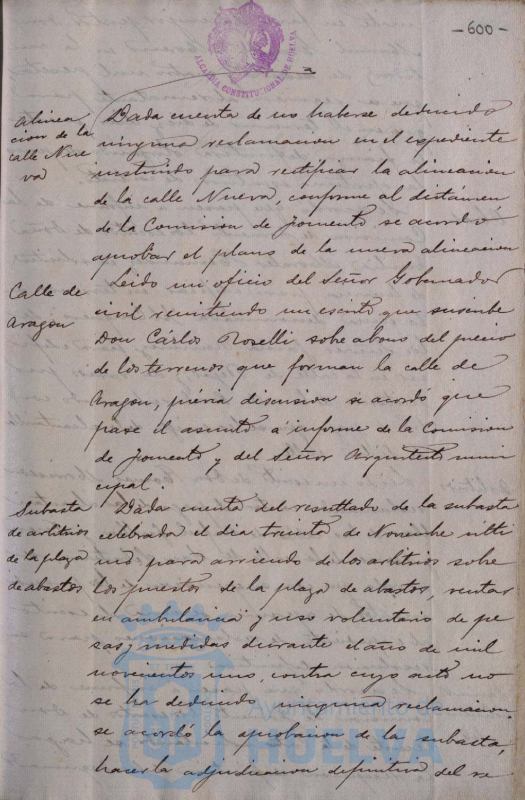 -600-
ALCALDIA CONSTITUCIONAL DE HUELVA
Alinea
cion de la
calle Nue
va
Dada cuenta de no haberse deducido
ninguna reclamacion en el expediente
instruido para rectificar la alineacion
de la calle Nueva, conforme al dictámen
de la Comision de fomento se acordó
aprobar el plano de la nueva alineacion
Calle de
Aragon
Leido un oficio del Señor Gobernador
civil remitiendo un escrito que suscribe
Don Cárlos Roselli sobre abono del precio
de los terrenos que forman la calle de
Aragon, prévia discusion se acordó que
pase el asunto á informe de la Comision
de fomento y del Señor Arquitecto muni
cipal.
Subasta
de arbitrios
de la plaza
de abastos
Dada cuenta del resultado de la subasta
celebrada el dia treinta de Noviembre últi
mo para arriendo de los arbitrios sobre
los puestos de la plaza de abastos, ventas
en ambulancia y uso voluntario de pe
sas y medidas durante el año de mil
novecientos uno, contra cuyo acto no
se ha deducido ninguna reclamacion,
se acordó la aprobacion de la subasta,
hacer la adjudicacion definitiva del re
Ayuntamiento de
HUELVA